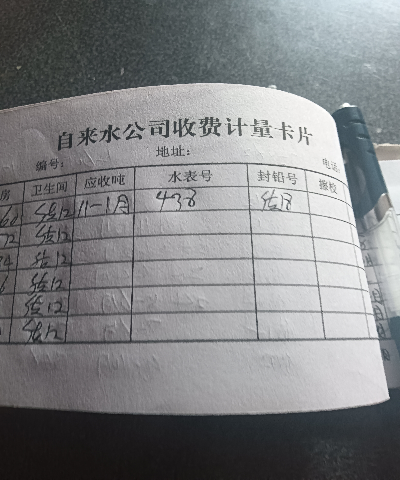 自来水公司收费计量卡片
编号： 地址： 电话：
房 卫生间 应收吨 水表号 封铅号
结12 11-1月 438 结18
72 结12
结12
结12
结12
结12